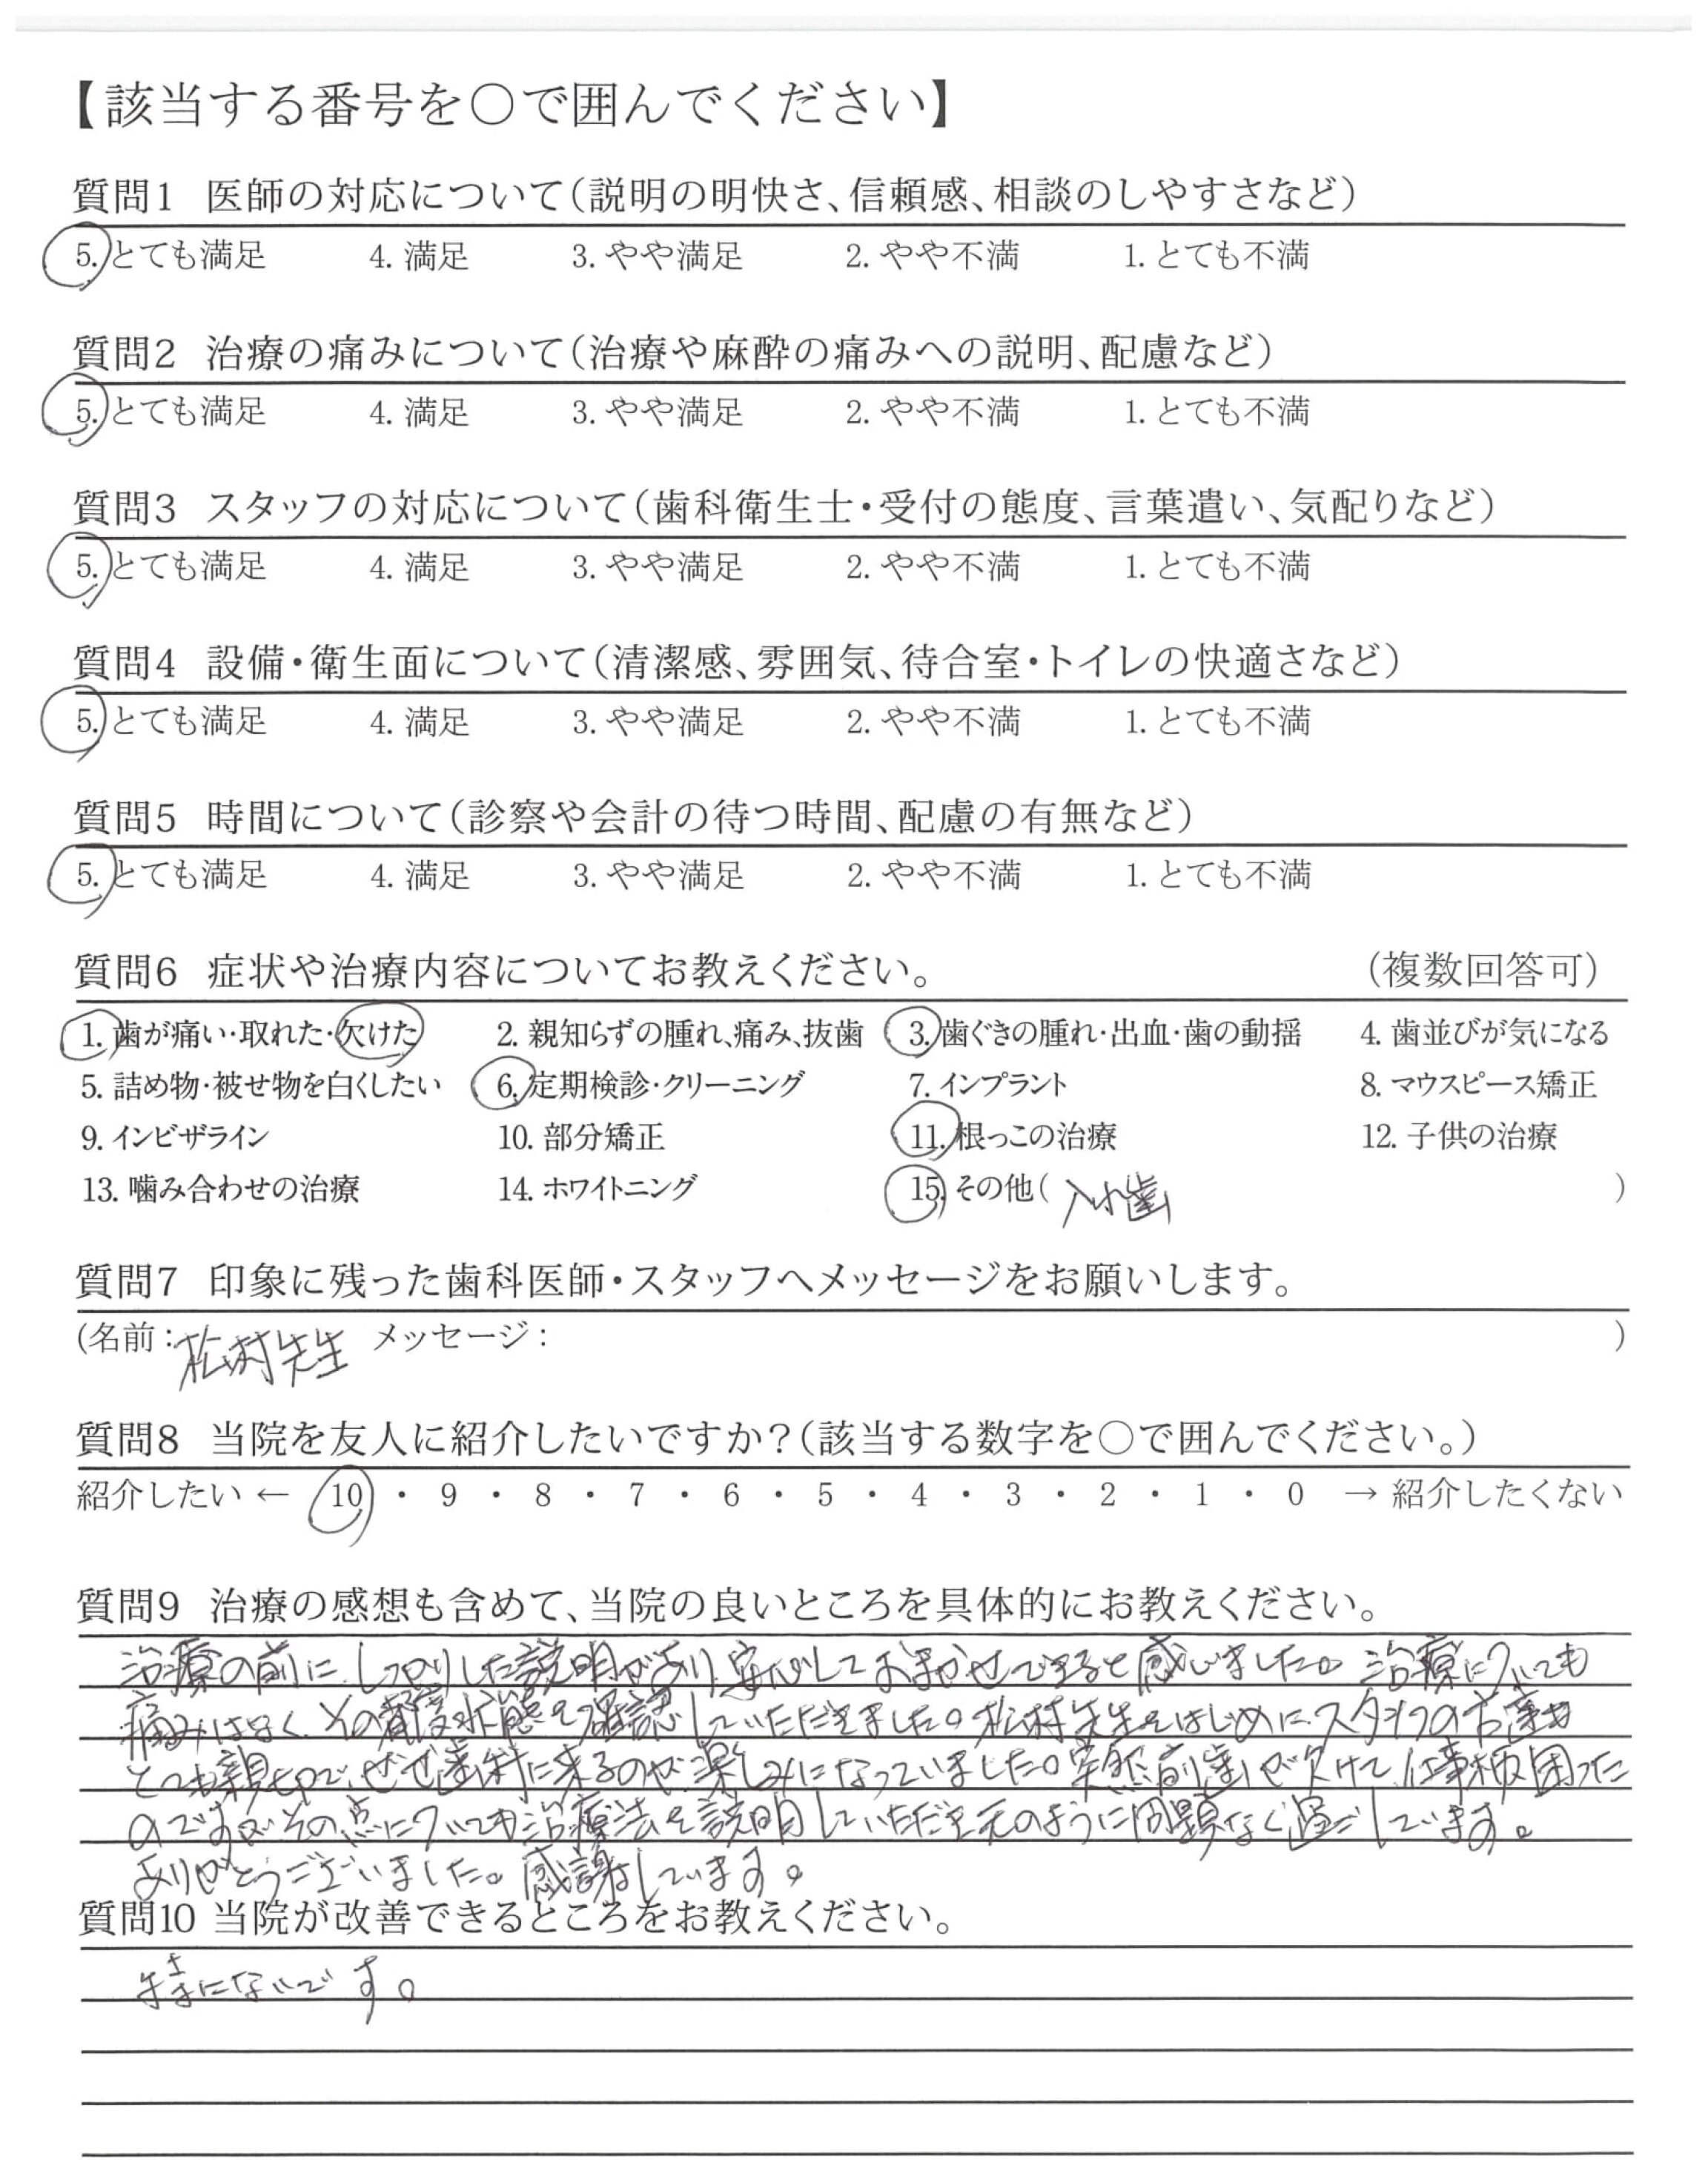 【該当する番号を○で囲んでください】
質問1 医師の対応について(説明の明快さ、信頼感、相談のしやすさなど)
5. とても満足 4. 満足 3. やや満足 2. やや不満 1. とても不満
質問2 治療の痛みについて(治療や麻酔の痛みへの説明、配慮など)
5. とても満足 4. 満足 3. やや満足 2. やや不満 1. とても不満
質問3 スタッフの対応について(歯科衛生士・受付の態度、言葉遣い、気配りなど)
5. とても満足 4. 満足 3. やや満足 2. やや不満 1. とても不満
質問4 設備・衛生面について(清潔感、雰囲気、待合室・トイレの快適さなど)
5. とても満足 4. 満足 3. やや満足 2. やや不満 1. とても不満
質問5 時間について(診察や会計の待つ時間、配慮の有無など)
5. とても満足 4. 満足 3. やや満足 2. やや不満 1. とても不満
質問6 症状や治療内容についてお教えください。 (複数回答可)
1. 歯が痛い・取れた・欠けた 2. 親知らずの腫れ、痛み、抜歯 3. 歯ぐきの腫れ・出血・歯の動揺 4. 歯並びが気になる
5. 詰め物・被せ物を白くしたい 6. 定期検診・クリーニング 7. インプラント 8. マウスピース矯正
9. インビザライン 10. 部分矯正 11. 根っこの治療 12. 子供の治療
13. 噛み合わせの治療 14. ホワイトニング 15. その他( 入れ歯 )
質問7 印象に残った歯科医師・スタッフへメッセージをお願いします。
(名前: 松村先生 メッセージ: )
質問8 当院を友人に紹介したいですか?(該当する数字を○で囲んでください。)
紹介したい ← 10 ・ 9 ・ 8 ・ 7 ・ 6 ・ 5 ・ 4 ・ 3 ・ 2 ・ 1 ・ 0 → 紹介したくない
質問9 治療の感想も含めて、当院の良いところを具体的にお教えください。
治療の前に、しっかりした説明があり、安心しておまかせできると感じました。治療についても
痛みはなく、その都度状態を確認していただきました。松村先生をはじめに、スタッフの方達も
とても親切で、ぜぜ歯科に来るのが楽しみになっていました。突然前歯が欠けて、仕事柄困った
のですが、その点についても治療法を説明していただき元のように問題なく過ごしています。
ありがとうございました。感謝しています。
質問10 当院が改善できるところをお教えください。
特にないです。